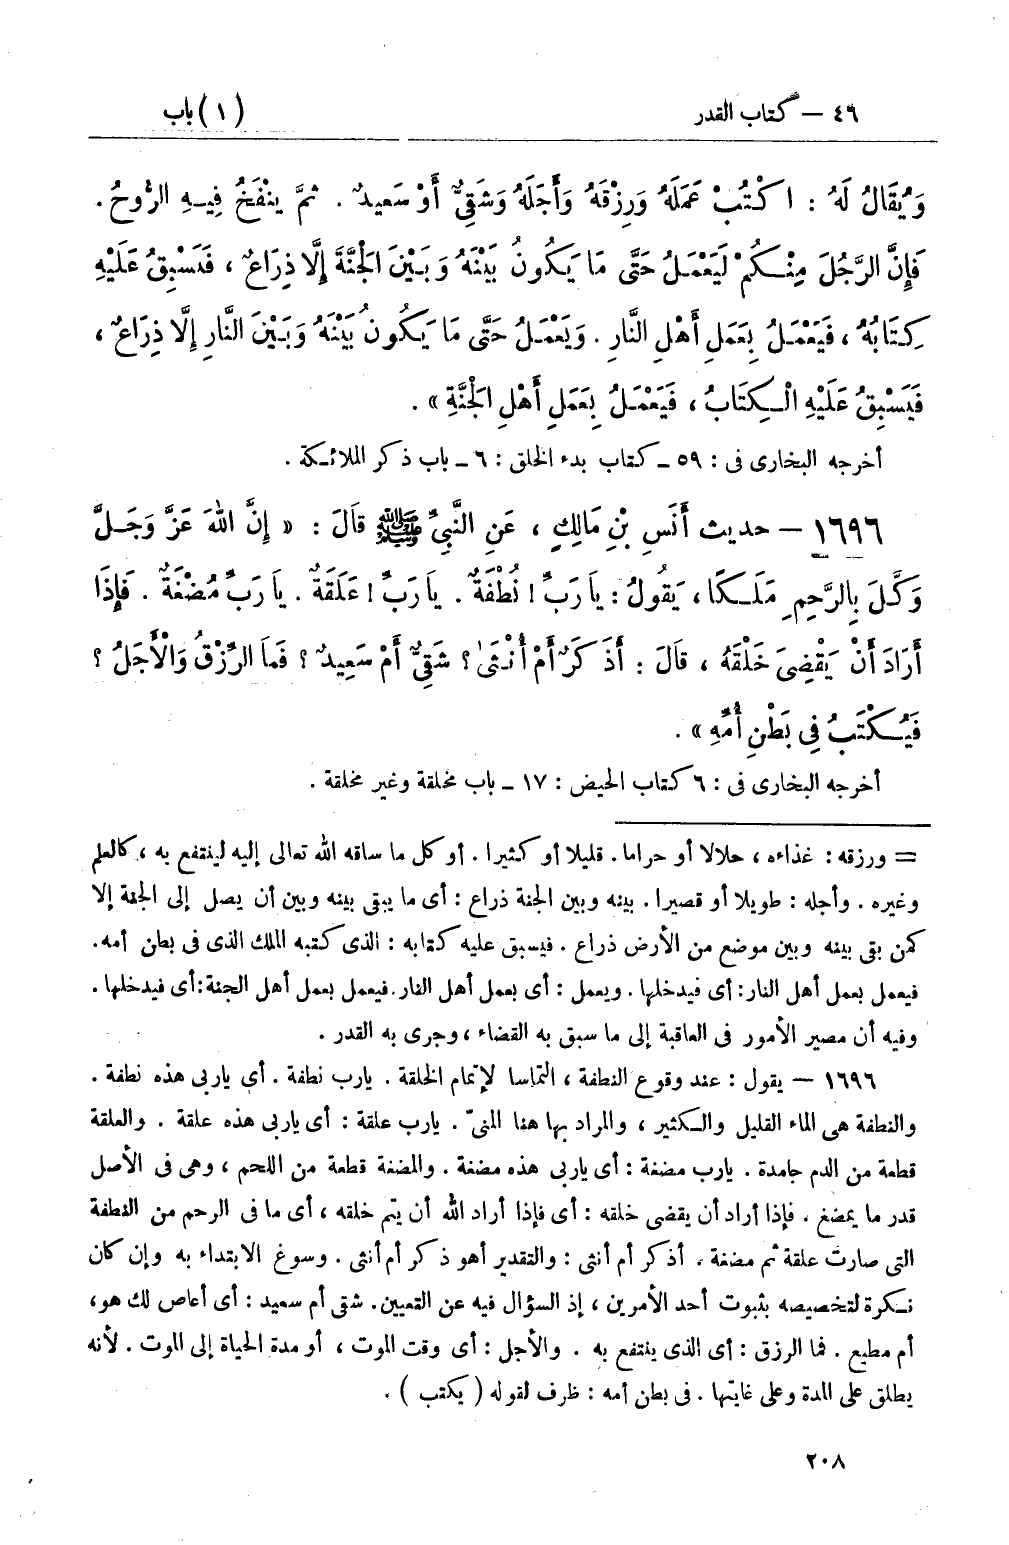 ٤٦ — كتاب القدر (١) باب
وَيُقَالُ لَهُ : اكْتُبْ عَمَلَهُ وَرِزْقَهُ وَأَجَلَهُ وَشَقِىٌّ أَوْ سَعِيدٌ . ثُمَّ يُنْفَخُ فِيهِ الرُّوحُ .
فَإِنَّ الرَّجُلَ مِنْكُمْ لَيَعْمَلُ حَتَّى مَا يَكُونُ بَيْنَهُ وَبَيْنَ الْجَنَّةِ إِلَّا ذِرَاعٌ ، فَيَسْبِقُ عَلَيْهِ
كِتَابُهُ ، فَيَعْمَلُ بِعَمَلِ أَهْلِ النَّارِ . وَيَعْمَلُ حَتَّى مَا يَكُونُ بَيْنَهُ وَبَيْنَ النَّارِ إِلَّا ذِرَاعٌ ،
فَيَسْبِقُ عَلَيْهِ الْكِتَابُ ، فَيَعْمَلُ بِعَمَلِ أَهْلِ الْجَنَّةِ » .
أخرجه البخارى فى : ٥٩ ـ كتاب بدء الخلق : ٦ ـ باب ذكر الملائكة .
١٦٩٦ — حديث أَنَسِ بْنِ مَالِكٍ ، عَنِ النَّبِيِّ ﷺ قَالَ : « إِنَّ اللهَ عَزَّ وَجَلَّ
وَكَّلَ بِالرَّحِمِ مَلَكًا ، يَقُولُ : يَا رَبِّ ! نُطْفَةٌ . يَا رَبِّ ! عَلَقَةٌ . يَا رَبِّ مُضْغَةٌ . فَإِذَا
أَرَادَ أَنْ يَقْضِىَ خَلْقَهُ ، قَالَ : أَذَكَرٌ أَمْ أُنْثَىٰ ؟ شَقِىٌّ أَمْ سَعِيدٌ ؟ فَمَا الرِّزْقُ وَالْأَجَلُ ؟
فَيُكْتَبُ فِى بَطْنِ أُمِّهِ » .
أخرجه البخارى فى : ٦ كتاب الحيض : ١٧ ـ باب مخلقة وغير مخلقة .
= ورزقه : غذاءه ، حلالا أو حراما . قليلا أو كثيرا . أو كل ما ساقه الله تعالى إليه لينتفع به ، كالعلم
وغيره . وأجله : طويلا أو قصيرا . بينه وبين الجنة ذراع : أى ما يبقى بينه وبين أن يصل إلى الجنة إلا
كمن بقى بينه وبين موضع من الأرض ذراع . فيسبق عليه كتابه : الذى كتبه الملك الذى فى بطن أمه .
فيعمل بعمل أهل النار : أى فيدخلها . ويعمل : أى بعمل أهل النار . فيعمل بعمل أهل الجنة : أى فيدخلها .
وفيه أن مصير الأمور فى العاقبة إلى ما سبق به القضاء ، وجرى به القدر .
١٦٩٦ — يقول : عند وقوع النطفة ، التماسا لإتمام الخلقة . يارب نطفة . أى ياربى هذه نطفة .
والنطفة هى الماء القليل والكثير ، والمراد بها هنا المنىّ . يارب علقة : أى ياربى هذه علقة . والعلقة
قطعة من الدم جامدة . يارب مضغة : أى ياربى هذه مضغة . والمضغة قطعة من اللحم ، وهى فى الأصل
قدر ما يمضغ . فإذا أراد أن يقضى خلقه : أى فإذا أراد الله أن يتم خلقه ، أى ما فى الرحم من النطفة
التى صارت علقة ثم مضغة . أذكر أم أنثى : والتقدير أهو ذكر أم أنثى . وسوغ الابتداء به وإن كان
نكرة لتخصيصه بثبوت أحد الأمرين ، إذ السؤال فيه عن التعيين . شقى أم سعيد : أى أعاص لك هو ،
أم مطيع . فما الرزق : أى الذى ينتفع به . والأجل : أى وقت الموت ، أو مدة الحياة إلى الموت . لأنه
يطلق على المدة وعلى غايتها . فى بطن أمه : ظرف لقوله ( يكتب ) .
٢٠٨